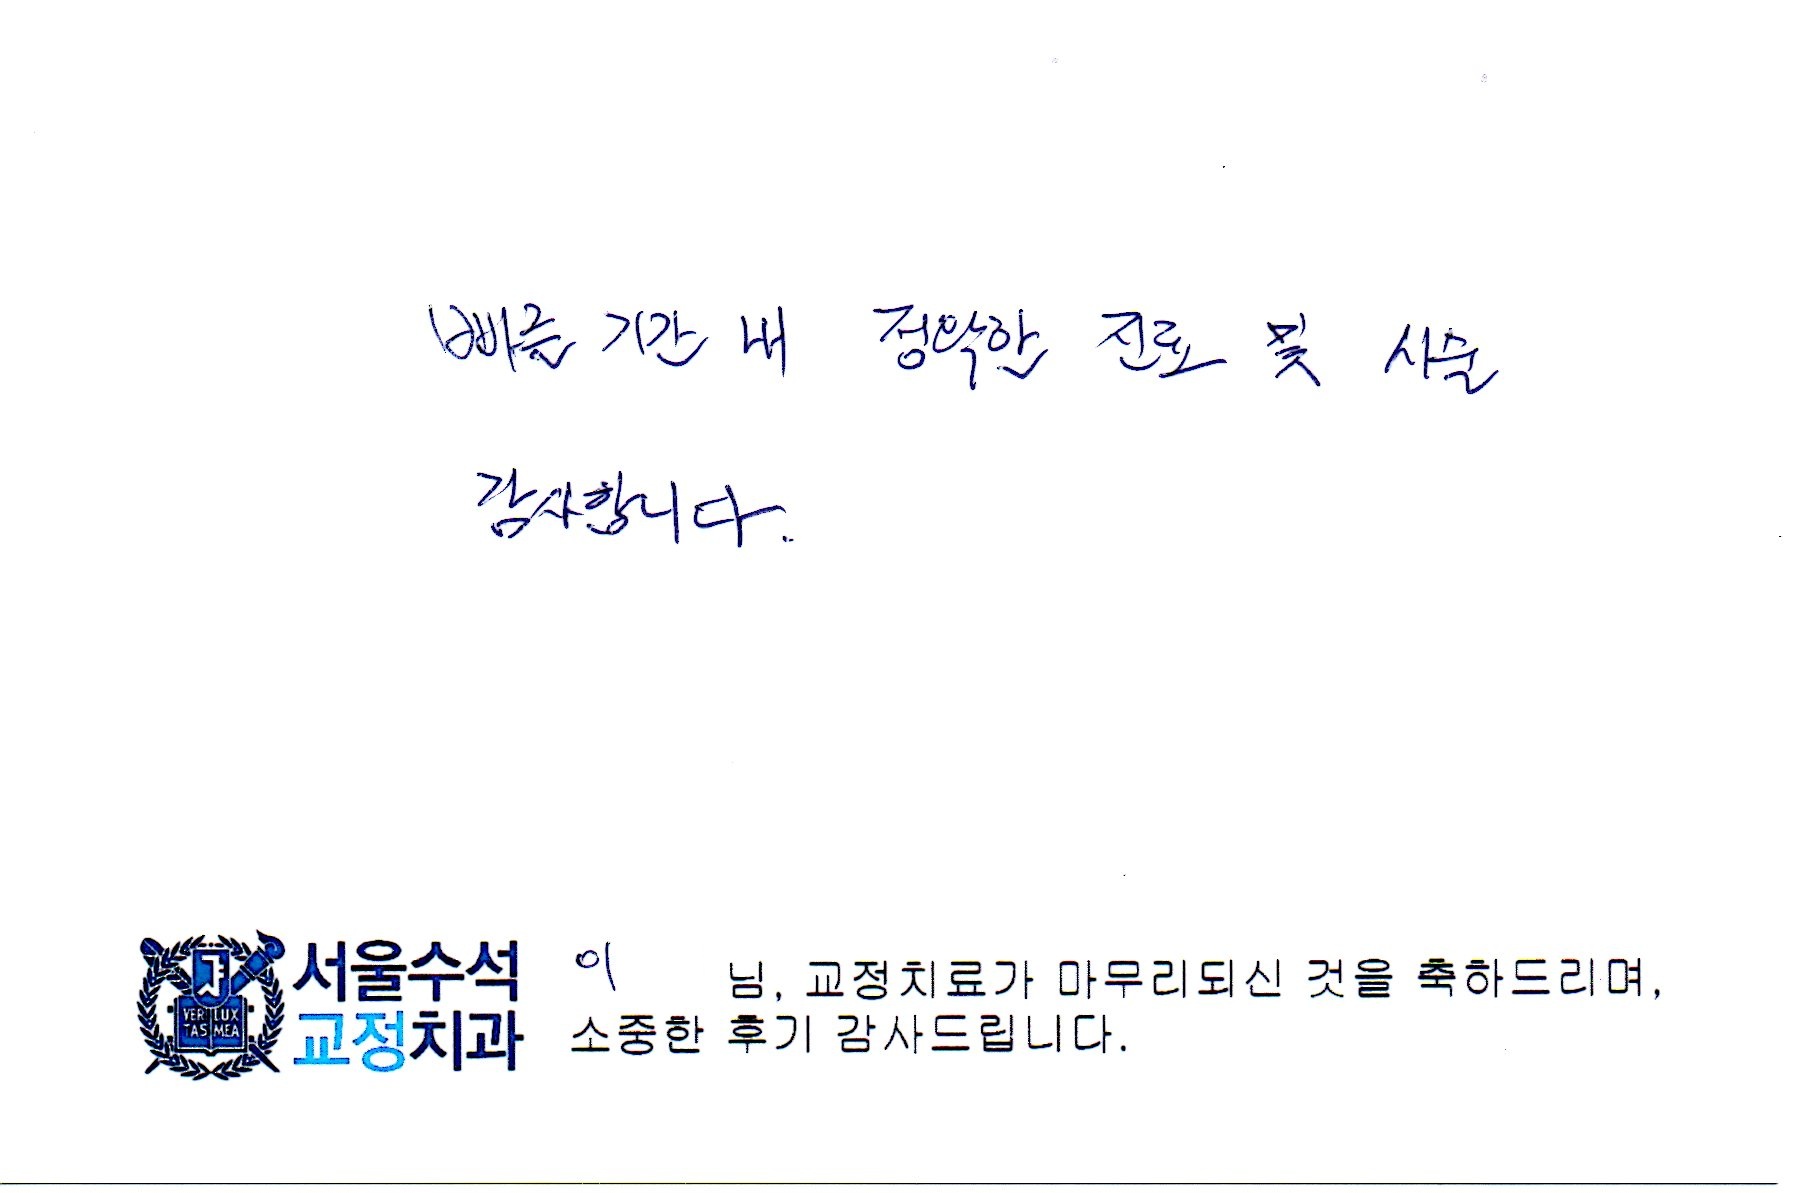 빠른 기간 내 정확한 진료 및 시술
감사합니다.
서울수석
교정치과
VERI LUX
TAS MEA
이 님, 교정치료가 마무리되신 것을 축하드리며,
소중한 후기 감사드립니다.